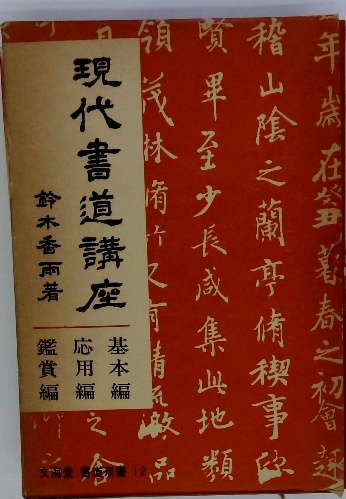 現代書道講座
鈴木香雨著
基本編
応用編
鑑賞編
文海堂 書道双書 12
年歳在癸丑暮春之初會
稽山陰之蘭亭脩稧事
賢畢至少長咸集此地
領茂林脩竹又有清流激
之
品類
合